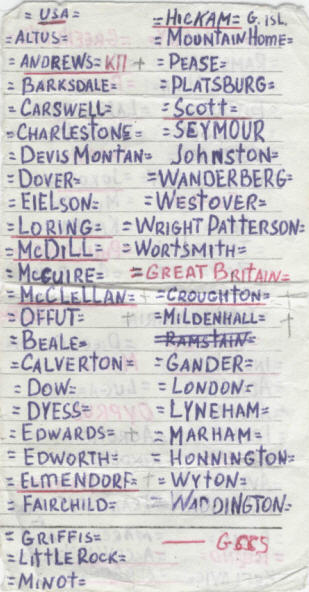 = USA =
= ALTUS=
= ANDREWS= KII +
= BARKSDALE=
= CARSWELL=
= CHARLESTONE=
= DEVIS MONTAN=
= DOVER=
= EIELSON=
= LORING=
= McDILL=
= McGUIRE=
= McCLELLAN= +
= OFFUT= +
= BEALE=
= CALVERTON=
= DOW=
= DYESS=
= EDWARDS= +
= EDWORTH=
= ELMENDORF= +
= FAIRCHILD=
= GRIFFIS=
= LITTLE ROCK=
= MINOT=
= HICKAM= G. ISL.
= MOUNTAIN HOME=
= PEASE=
= PLATSBURG=
= SCOTT=
= SEYMOUR
JOHNSTON=
= WANDERBERG=
= WESTOVER=
= WRIGHT PATTERSON=
= WORTSMITH=
= GREAT BRITAIN=
= CROUGHTON= +
= MILDENHALL= +
= RAMSTAIN=
= GANDER=
= LONDON=
= LYNEHAM=
= MARHAM=
= HONNINGTON=
= WYTON=
= WADDINGTON=